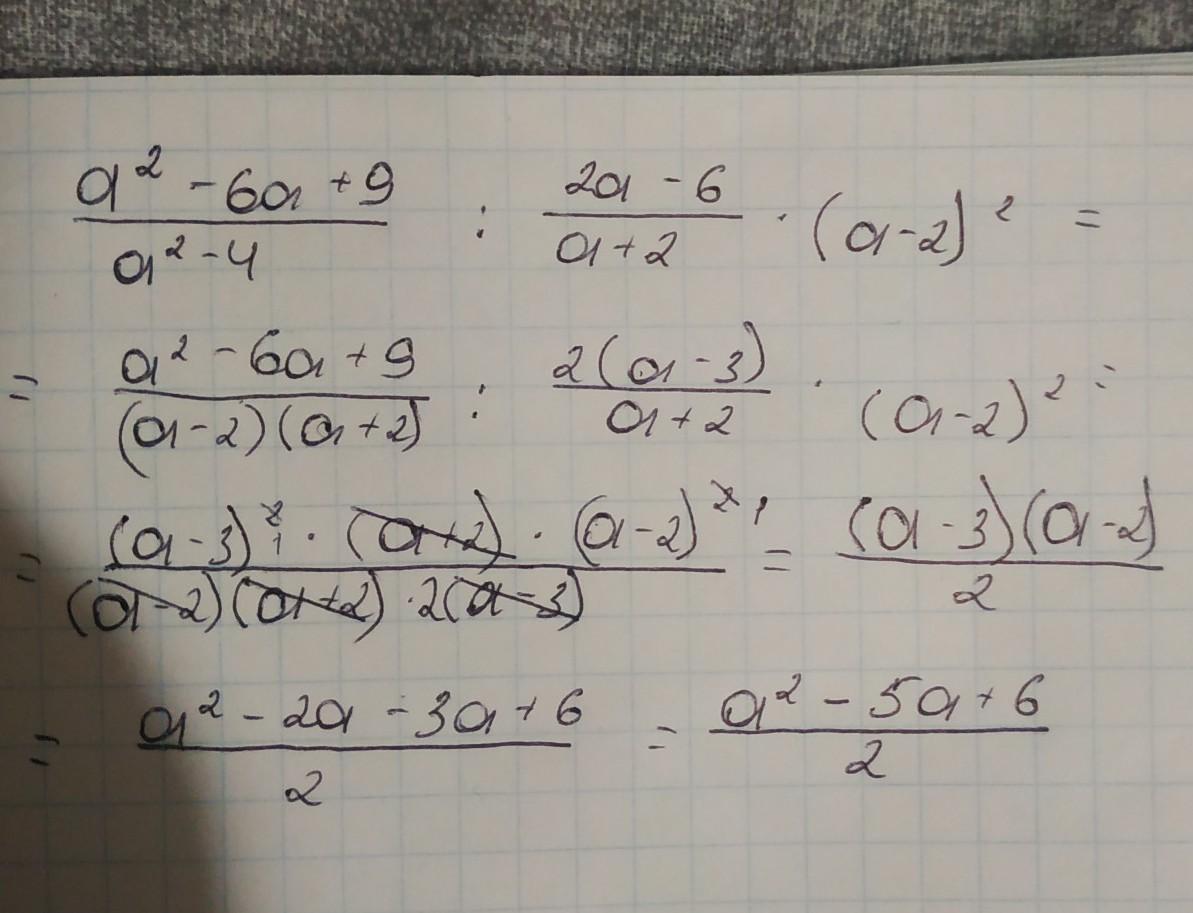 (a² - 6a + 9)/(a² - 4) : (2a - 6)/(a + 2) · (a - 2)² =
= (a² - 6a + 9)/((a - 2)(a + 2)) : (2(a - 3))/(a + 2) · (a - 2)² =
= ((a - 3)² ¹ · (a + 2) · (a - 2)² ¹)/((a - 2)(a + 2) · 2(a - 3)) = ((a - 3)(a - 2))/2
= (a² - 2a - 3a + 6)/2 = (a² - 5a + 6)/2